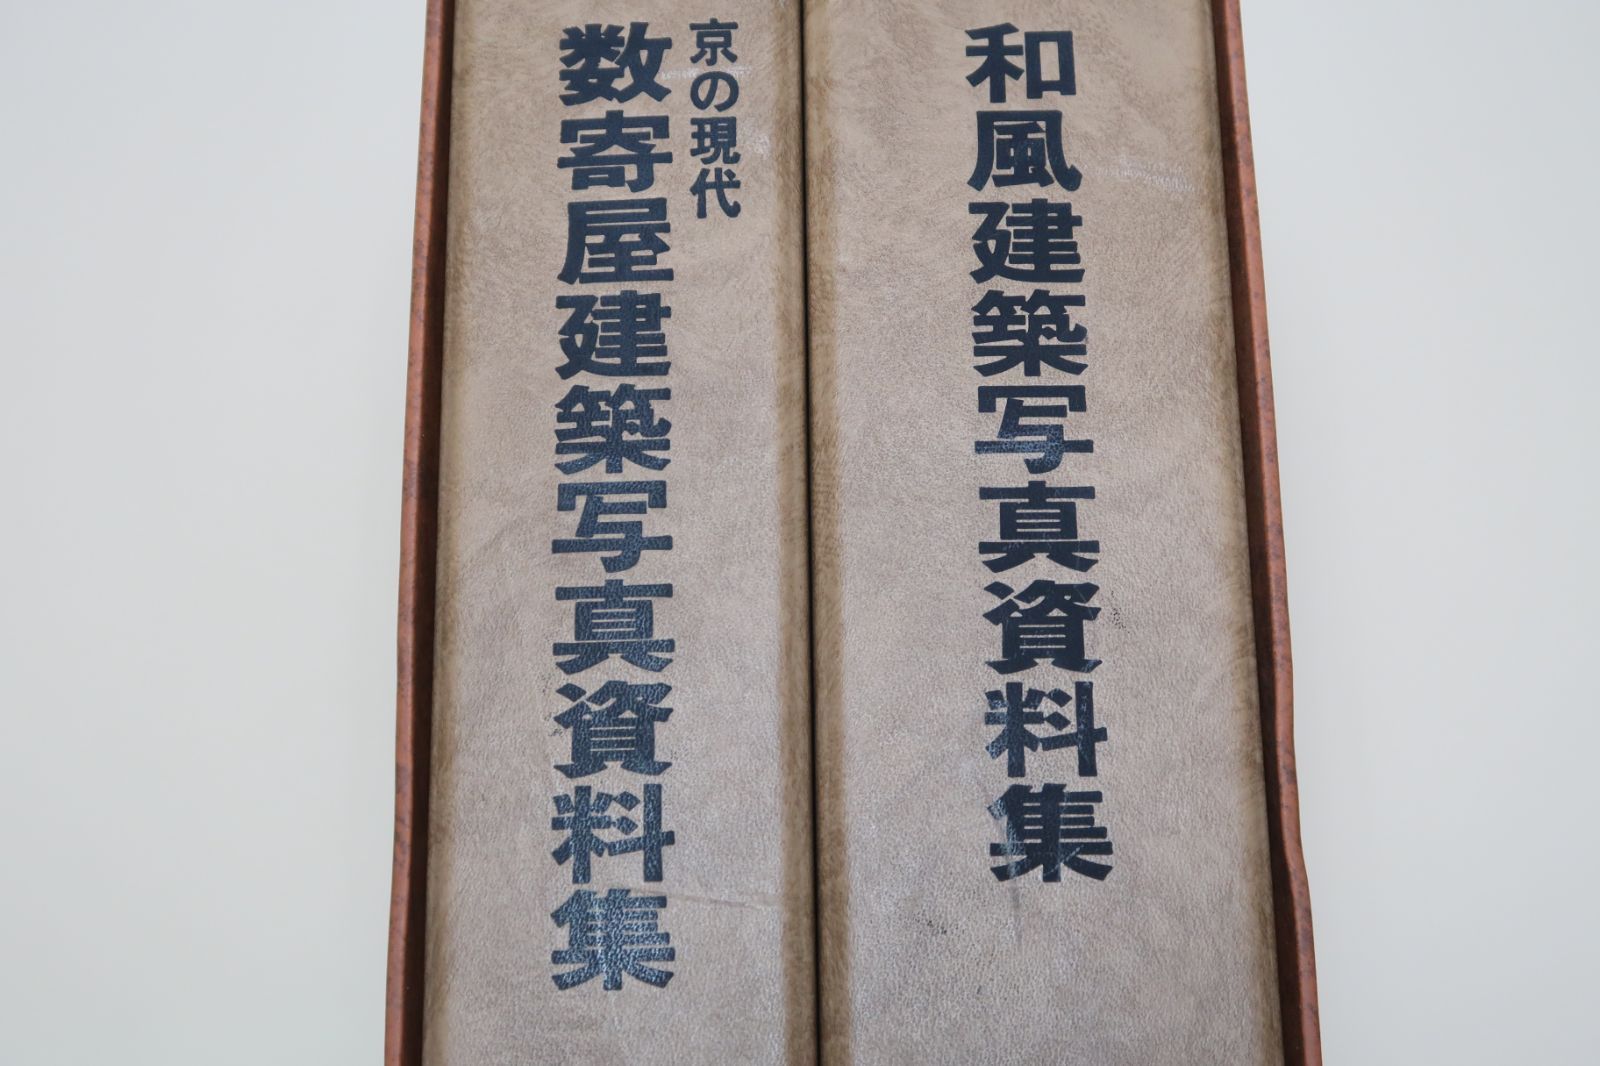 和風建築写真資料集
京の現代
数寄屋建築写真資料集